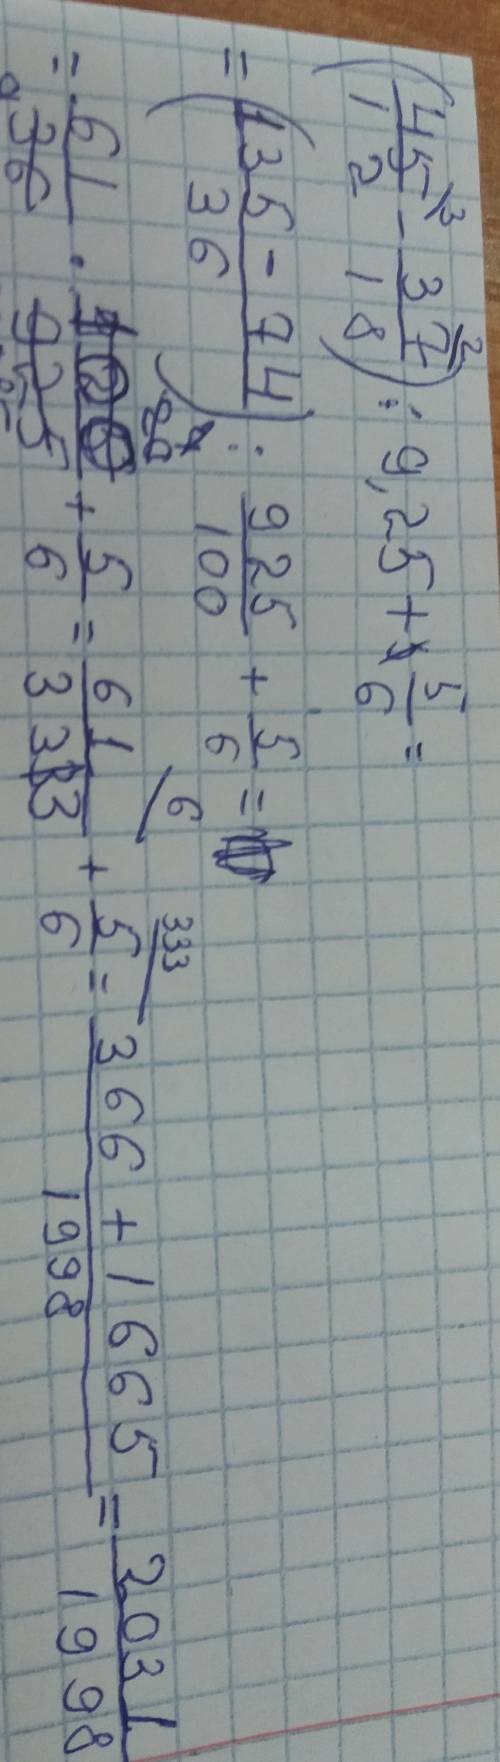 (45/12 - 37/18) : 9,25 + 5/6 =
= (135 - 74)/36 : 925/100 + 5/6 =
= 61/36 · 100/925 + 5/6 = 61/333 + 5/6 = (366 + 1665)/1998 = 2031/1998